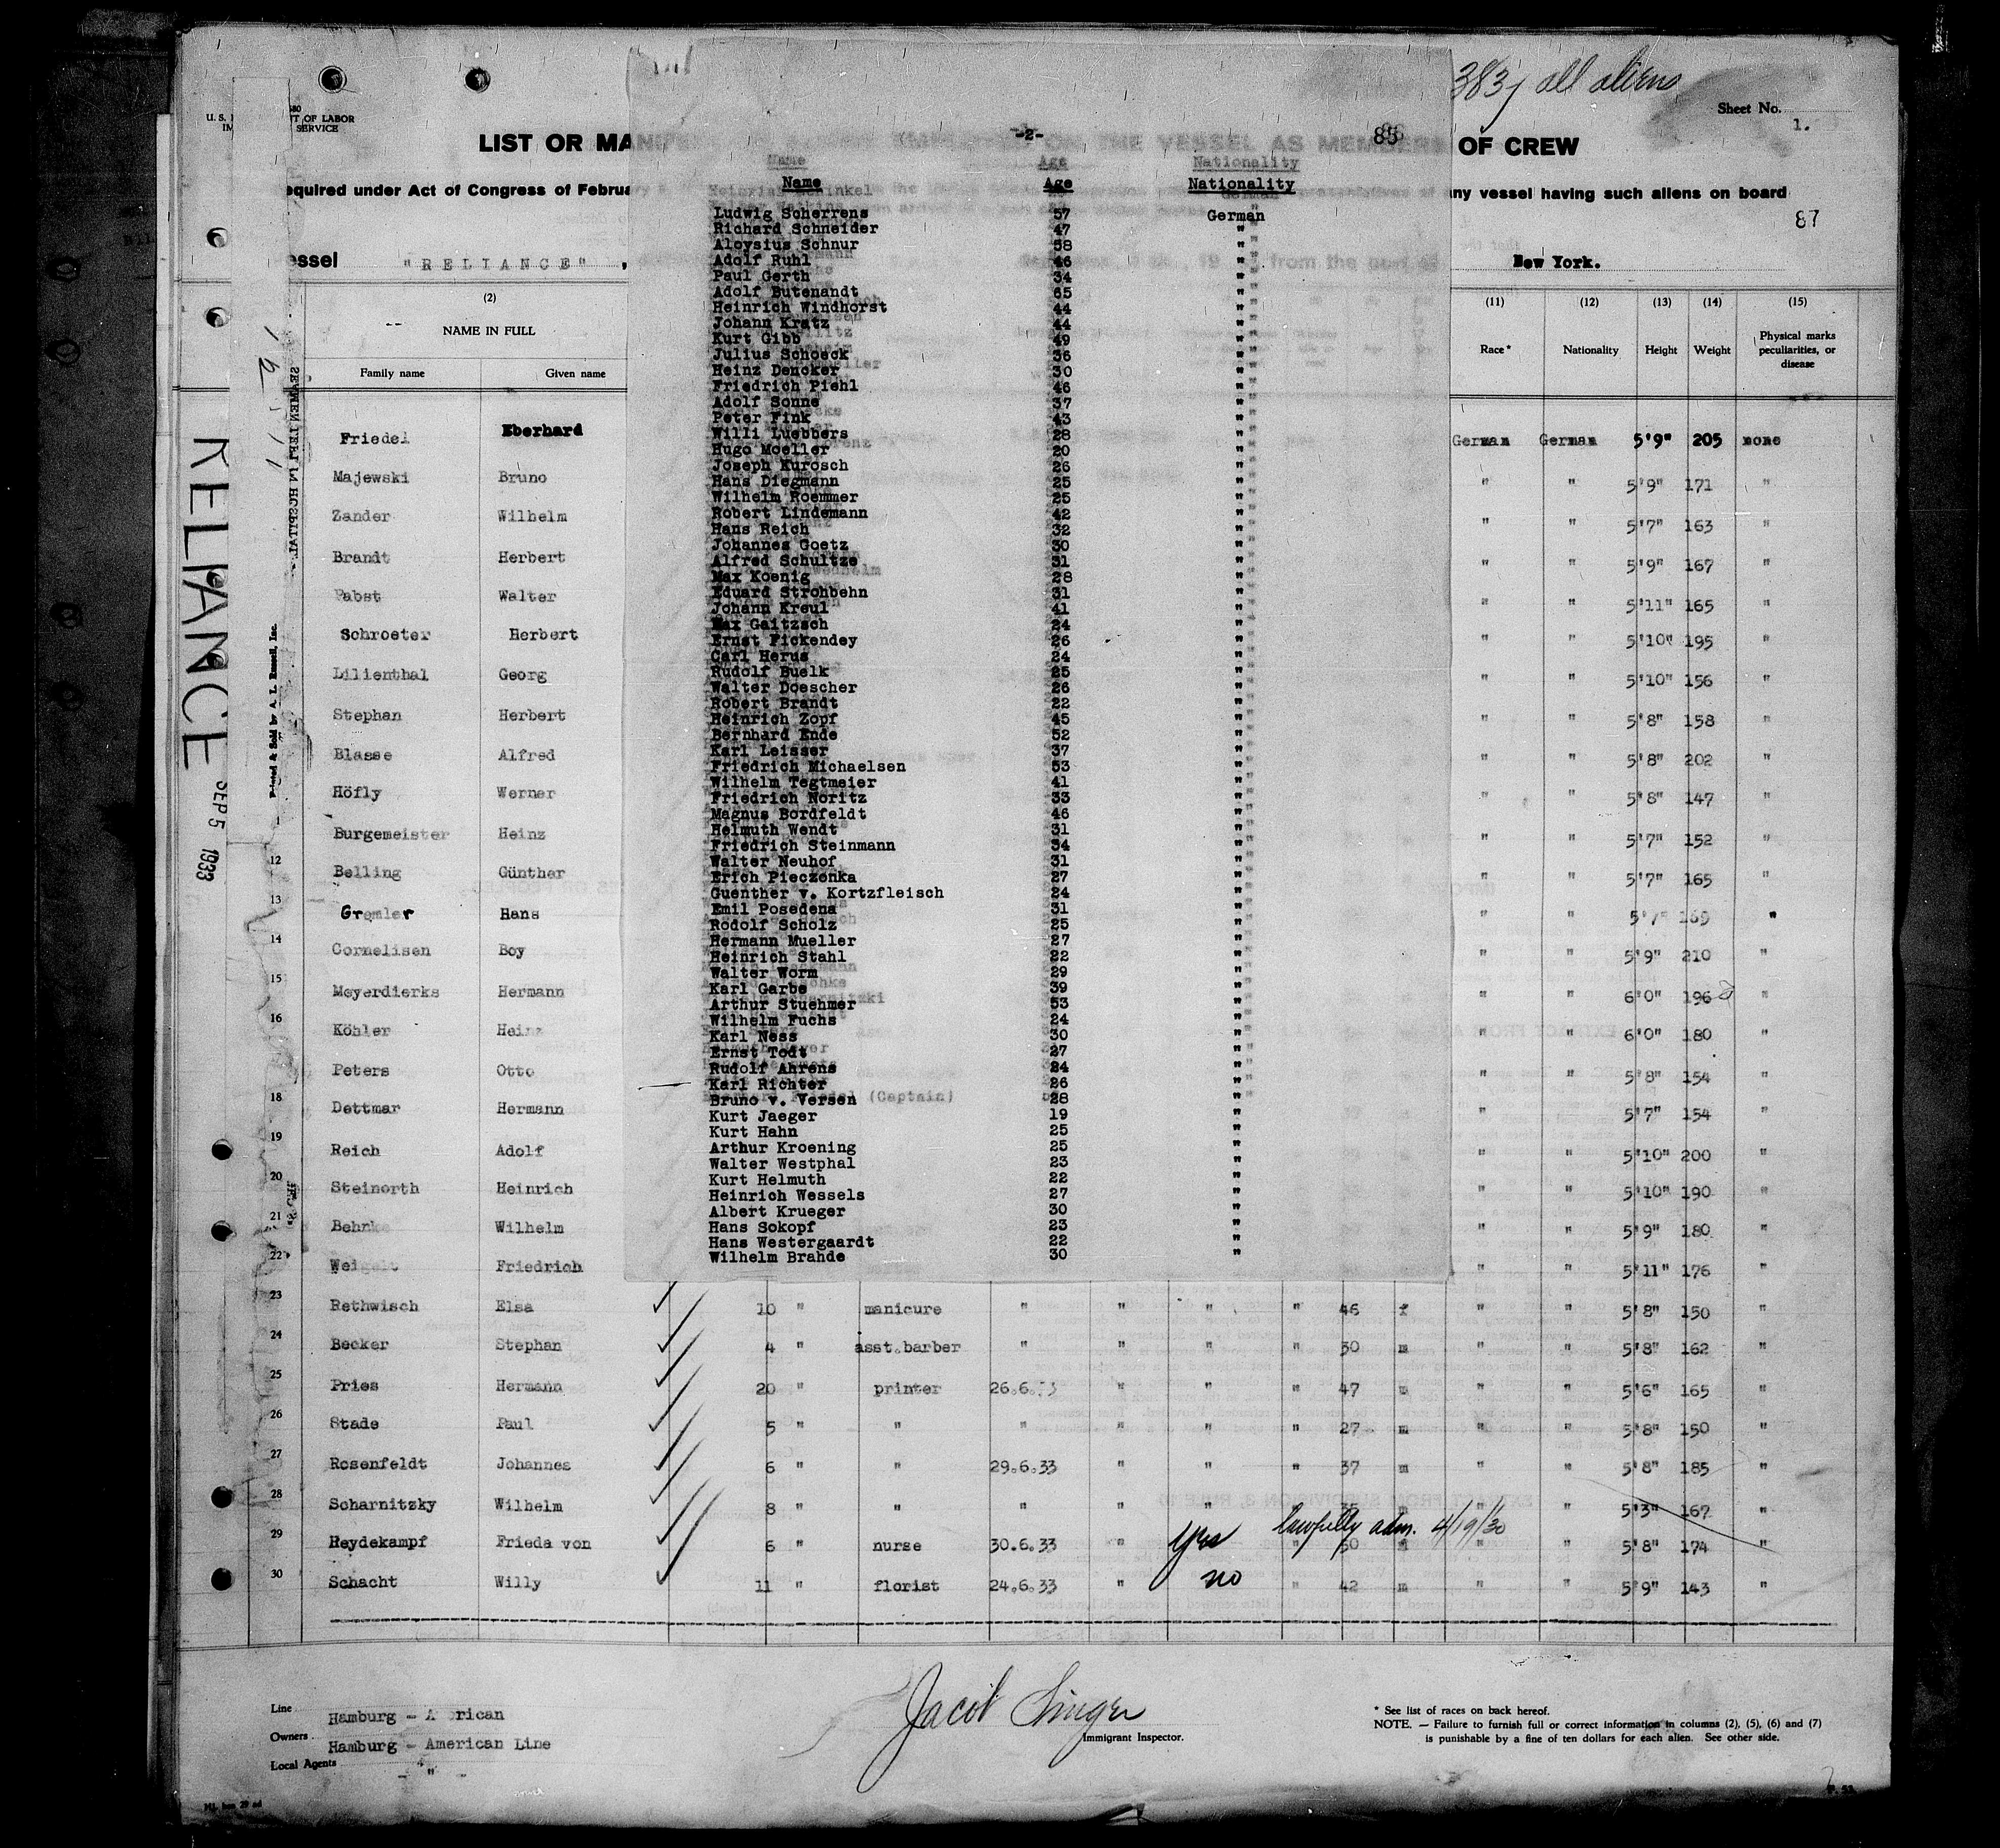 383 / all aliens
Sheet No. 1.
U. S. OF LABOR
SERVICE
LIST OR MA OF CREW
-2-
85
equired under Act of Congress of Februa ny vessel having such aliens on board
87
essel "RELIANCE" , from the port New York.
RELIANCE
SEP 5 1933
Printed & Sold by A. L. Russell, Inc.
Name Age Nationality
Ludwig Scherrens 57 German
Richard Schneider 47 "
Aloysius Schnur 58 "
Adolf Ruhl 46 "
Paul Gerth 34 "
Adolf Butenandt 65 "
Heinrich Windhorst 44 "
Johann Kratz 44 "
Kurt Gibb 49 "
Julius Schoeck 36 "
Heinz Dencker 30 "
Friedrich Piehl 46 "
Adolf Sonne 37 "
Peter Fink 43 "
Willi Luebbers 28 "
Hugo Moeller 20 "
Joseph Kurosch 26 "
Hans Diegmann 25 "
Wilhelm Roemmer 25 "
Robert Lindemann 42 "
Hans Reich 32 "
Johannes Goetz 30 "
Alfred Schultze 31 "
Max Koenig 28 "
Eduard Strohbehn 31 "
Johann Kreul 41 "
Max Gaitzsch 24 "
Ernst Fickendey 26 "
Carl Herus 24 "
Rudolf Buelk 25 "
Walter Doescher 26 "
Robert Brandt 22 "
Heinrich Zopf 45 "
Bernhard Ende 52 "
Karl Leisser 37 "
Friedrich Michaelsen 53 "
Wilhelm Tegtmeier 41 "
Friedrich Noritz 33 "
Magnus Bordfeldt 46 "
Helmuth Wendt 31 "
Friedrich Steinmann 34 "
Walter Neuhof 31 "
Erich Pieczonka 27 "
Guenther v. Kortzfleisch 24 "
Emil Posedena 31 "
Rodolf Scholz 25 "
Hermann Mueller 27 "
Heinrich Stahl 22 "
Walter Worm 29 "
Karl Garbe 39 "
Arthur Stuehmer 53 "
Wilhelm Fuchs 24 "
Karl Ness 30 "
Ernst Todt 27 "
Rudolf Ahrens 24 "
Karl Richter 26 "
Bruno v. Versen 28 "
Kurt Jaeger 19 "
Kurt Hahn 25 "
Arthur Kroening 25 "
Walter Westphal 23 "
Kurt Helmuth 22 "
Heinrich Wessels 27 "
Albert Krueger 30 "
Hans Sokopf 23 "
Hans Westergaardt 22 "
Wilhelm Brahde 30 "
(2) (11) (12) (13) (14) (15)
NAME IN FULL Race* Nationality Height Weight Physical marks peculiarities, or disease
Family name Given name
Friedel Eberhard German German 5'9" 205 none
Majewski Bruno " " 5'9" 171 "
Zander Wilhelm " " 5'7" 163 "
Brandt Herbert " " 5'9" 167 "
Pabst Walter " " 5'11" 165 "
Schroeter Herbert " " 5'10" 195 "
Lilienthal Georg " " 5'10" 156 "
Stephan Herbert " " 5'8" 158 "
Blasse Alfred " " 5'8" 202 "
Höfly Werner " " 5'8" 147 "
Burgemeister Heinz " " 5'7" 152 "
12 Belling Günther " " 5'7" 165 "
13 Gromler Hans " " 5'7" 169 "
14 Cornelisen Boy " " 5'9" 210 "
15 Meyerdierks Hermann " " 6'0" 196 "
16 Köhler Heinz " " 6'0" 180 "
Peters Otto " " 5'8" 154 "
18 Dettmar Hermann " " 5'7" 154 "
19 Reich Adolf " " 5'10" 200 "
20 Steinorth Heinrich " " 5'10" 190 "
21 Behnke Wilhelm " " 5'9" 180 "
22 Weigelt Friedrich " " 5'11" 176 "
23 Rethwisch Elsa 10 " manicure " " " " 46 f " " 5'8" 150 "
24 Becker Stephan 4 " asst.barber " " " " 30 m " " 5'8" 162 "
25 Pries Hermann 20 " printer 26.6.33 " " " 47 m " " 5'6" 165 "
26 Stade Paul 5 " " " " " " 27 m " " 5'8" 150 "
27 Rosenfeldt Johannes 6 " " 29.6.33 " " " 37 m " " 5'8" 185 "
28 Scharnitzky Wilhelm 8 " " " " " " 35 m " " 5'3" 167 "
lawfully adm. 4/19/30
29 Heydekampf Frieda von 6 " nurse 30.6.33 " yes " 50 f " " 5'8" 174 "
30 Schacht Willy 11 " florist 24.6.33 " no " 42 m " " 5'9" 143 "
Line Hamburg - A rican
Owners Hamburg - American Line
Local Agents - " -
Jacob Singer
Immigrant Inspector.
* See list of races on back hereof.
NOTE. — Failure to furnish full or correct information in columns (2), (5), (6) and (7)
is punishable by a fine of ten dollars for each alien. See other side.